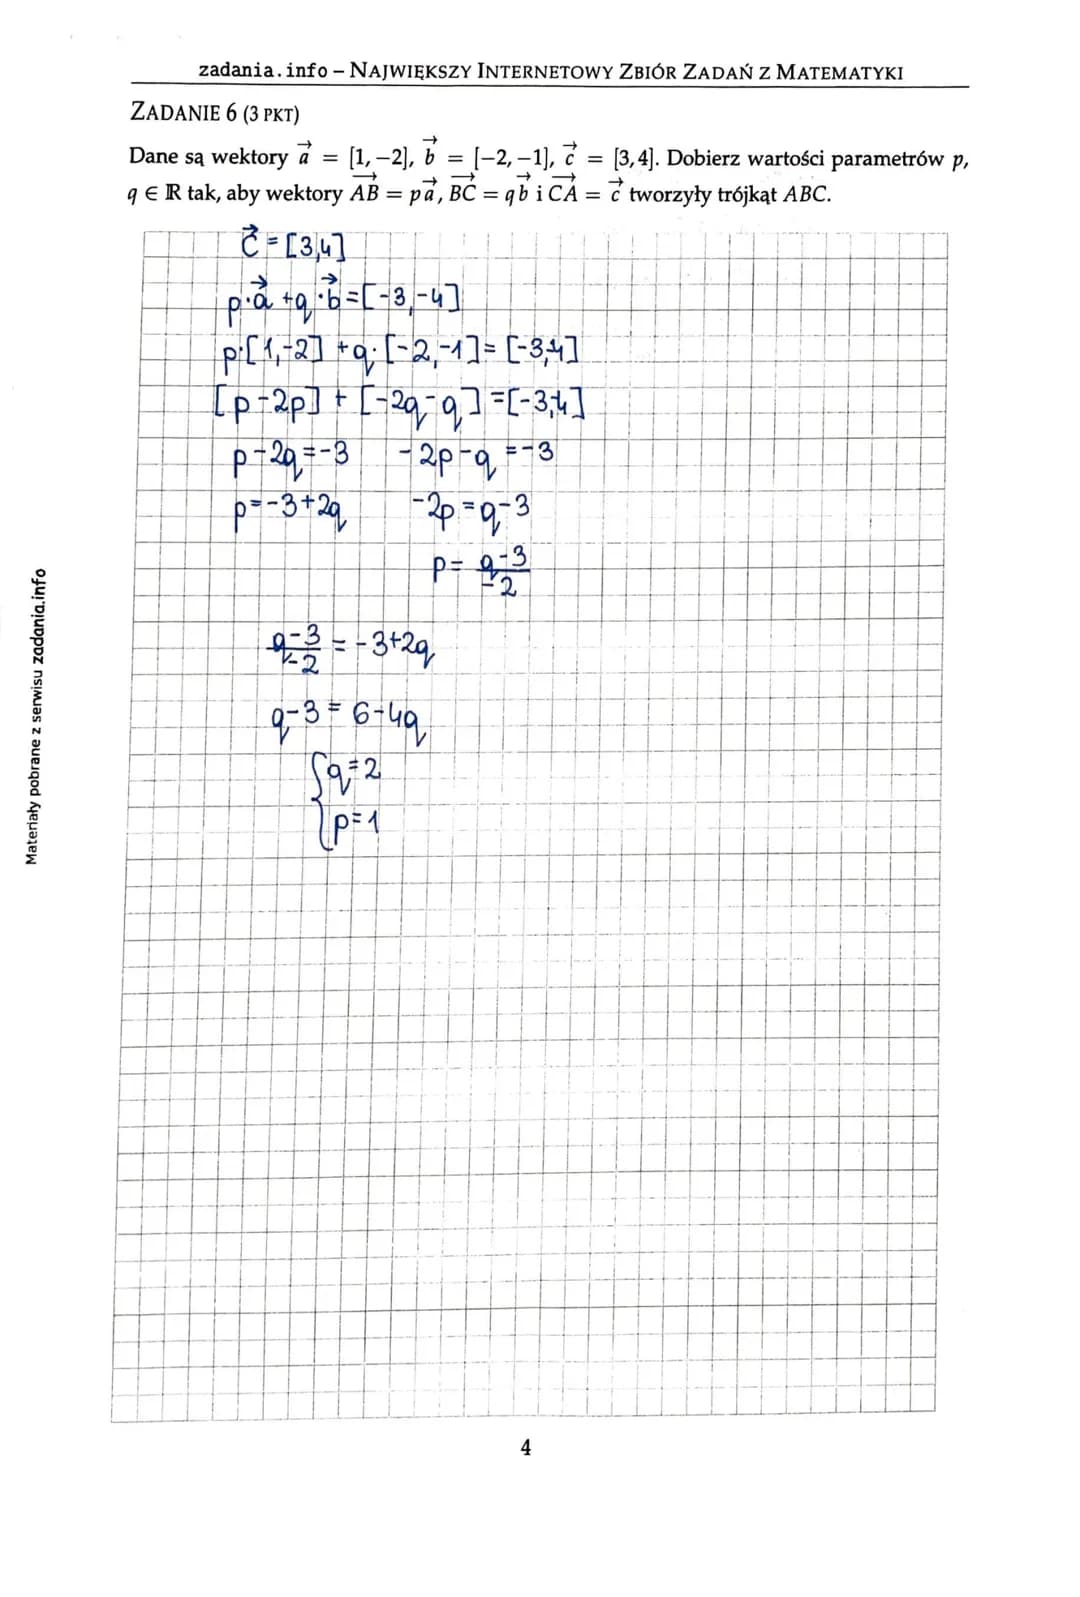 zadania.info – NAJWIĘKSZY INTERNETOWY ZBIÓR ZADAŃ Z MATEMATYKI
ZADANIE 6 (3 PKT)
Dane są wektory a⃗ = [1, −2], b⃗ = [−2, −1], c⃗ = [3, 4]. Dobierz wartości parametrów p,
q ∈ ℝ tak, aby wektory AB⃗ = pa⃗, BC⃗ = qb⃗ i CA⃗ = c⃗ tworzyły trójkąt ABC.
c⃗ = [3,4]
p·a⃗ + q·b⃗ = [-3,-4]
p·[1,-2] + q·[-2,-1] = [-3,4]
[p-2p] + [-2q-q] = [-3,4]
p-2q=-3 -2p-q=-3
p=-3+2q -2p=q-3
p= (q-3)/-2
(q-3)/-2 = -3+2q
q-3 = 6-4q
{q=2
p=1
Materiały pobrane z serwisu zadania.info
4